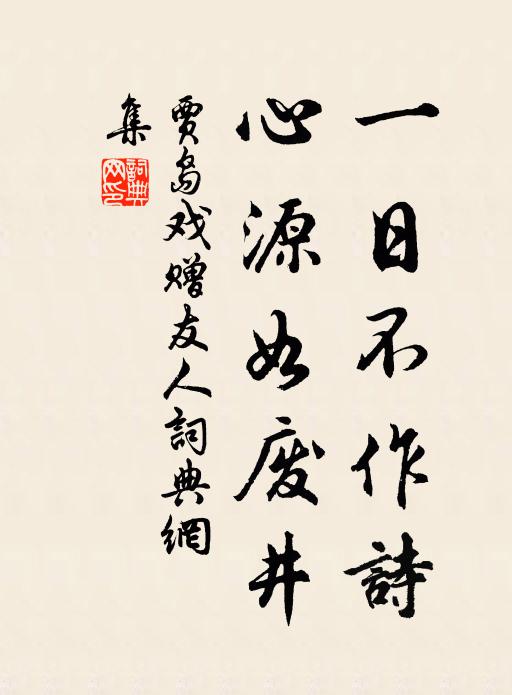 一日不作詩
心源如废井
賈島戏赠友人詞典網
集
詞典網印